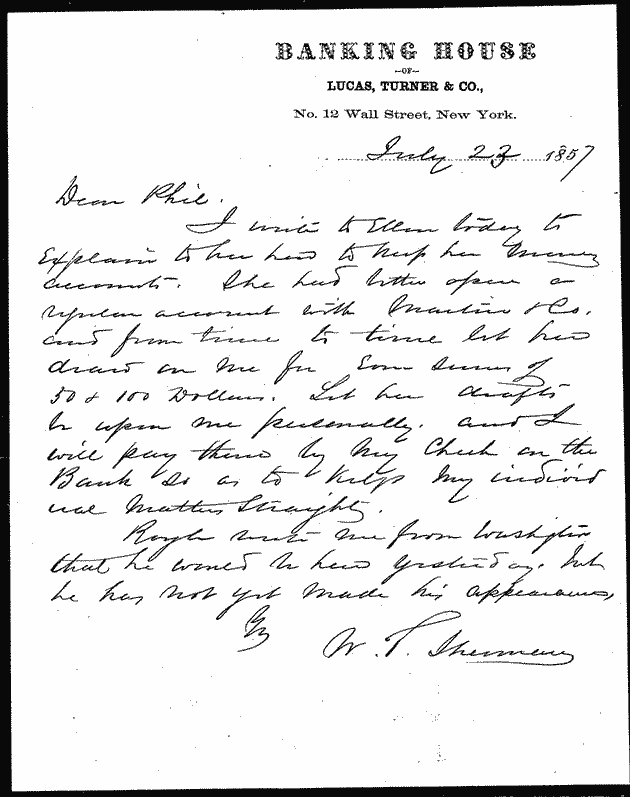 BANKING HOUSE
—OF—
LUCAS, TURNER & CO.,
No. 12 Wall Street, New York.
July 23 1857
Dear Phil.
I write to Ellen today to
Explain to her how to keep her money
accounts. She had better open a
regular account with & Co.
and from time to time let her
draw on me for Even sums of
50 & 100 Dollars. Let her drafts
be upon me personally. and I
will pay them by my Check on the
Bank so as to keep my individ
ual Matters Straight.
write me from Washington
that he would be here yesterday. but
he has not yet made his appearance,
Yrs
W. T. Sherman